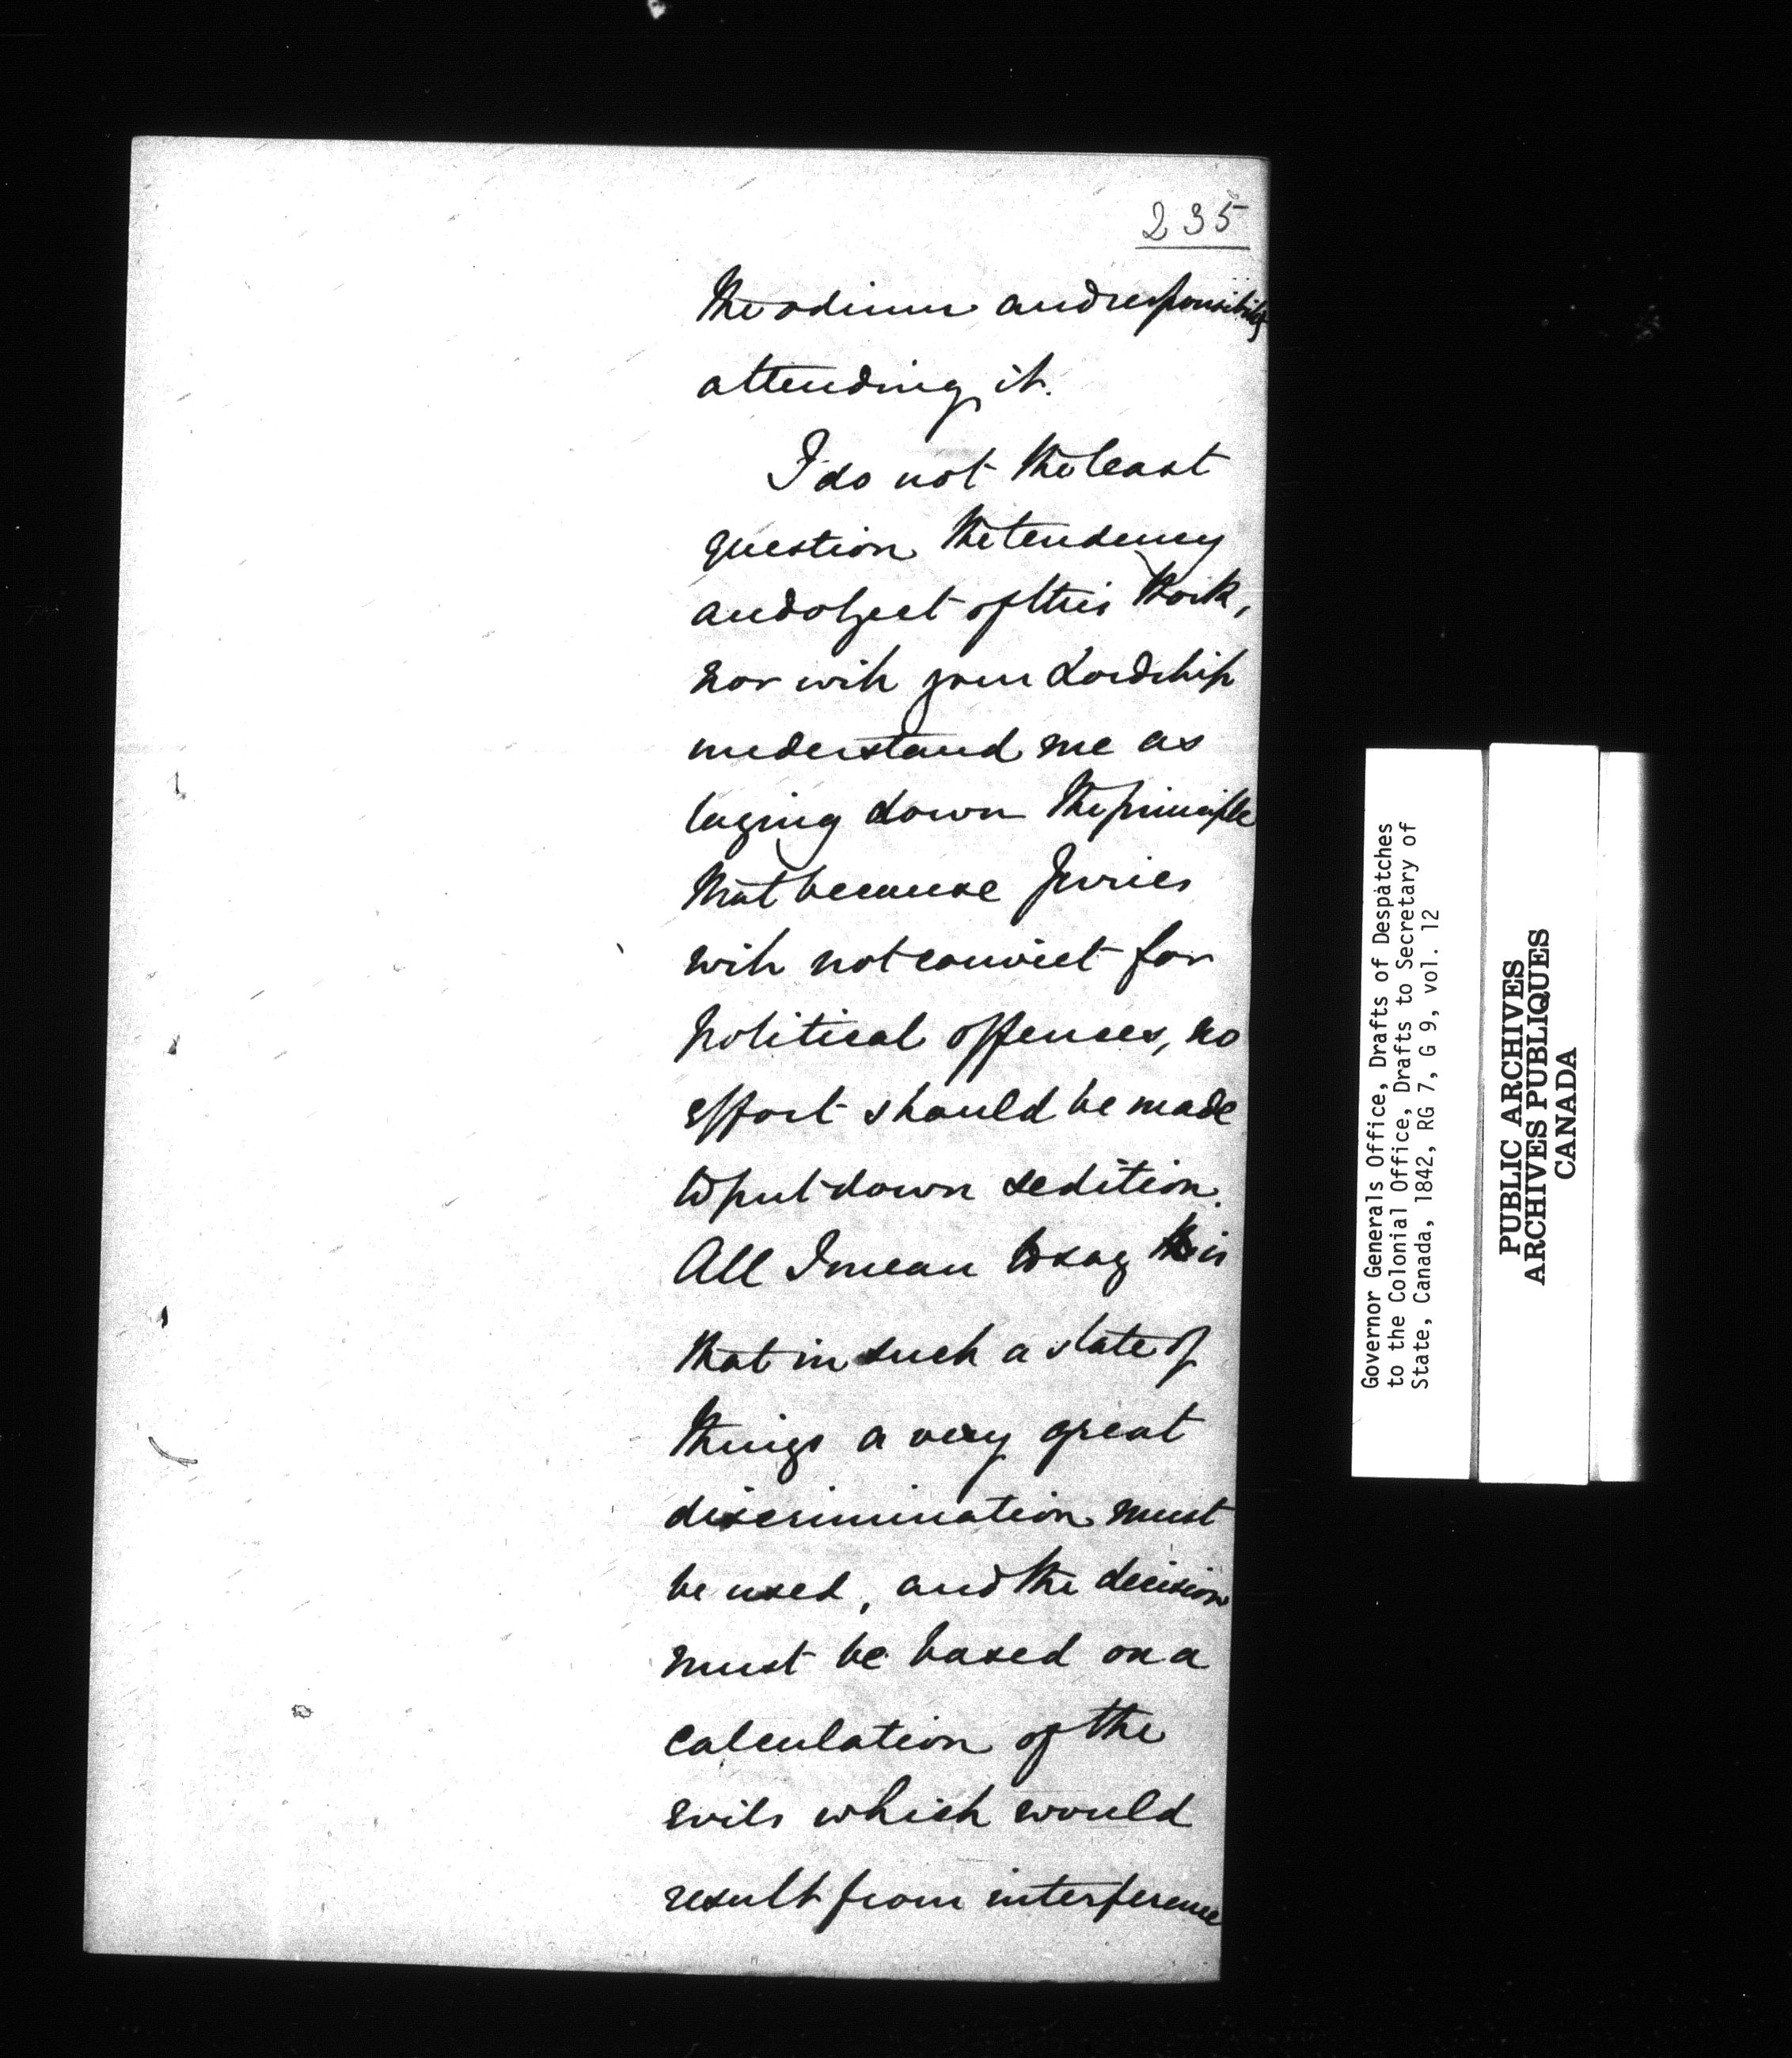 235
the odium and responsibility
attending it.
I do not the least
question the tendency
and object of this Work,
nor will your Lordship
understand me as
laying down the principle
that because Juries
will not convict for
political offences, no
effort should be made
to put down sedition.
All I mean to say is
that in such a state of
things a very great
discrimination must
be used, and the decision
must be based on a
calculation of the
evils which would
result from interference
Governor Generals Office, Drafts of Despatches
to the Colonial Office, Drafts to Secretary of
State, Canada, 1842, RG 7, G 9, vol. 12
PUBLIC ARCHIVES
ARCHIVES PUBLIQUES
CANADA